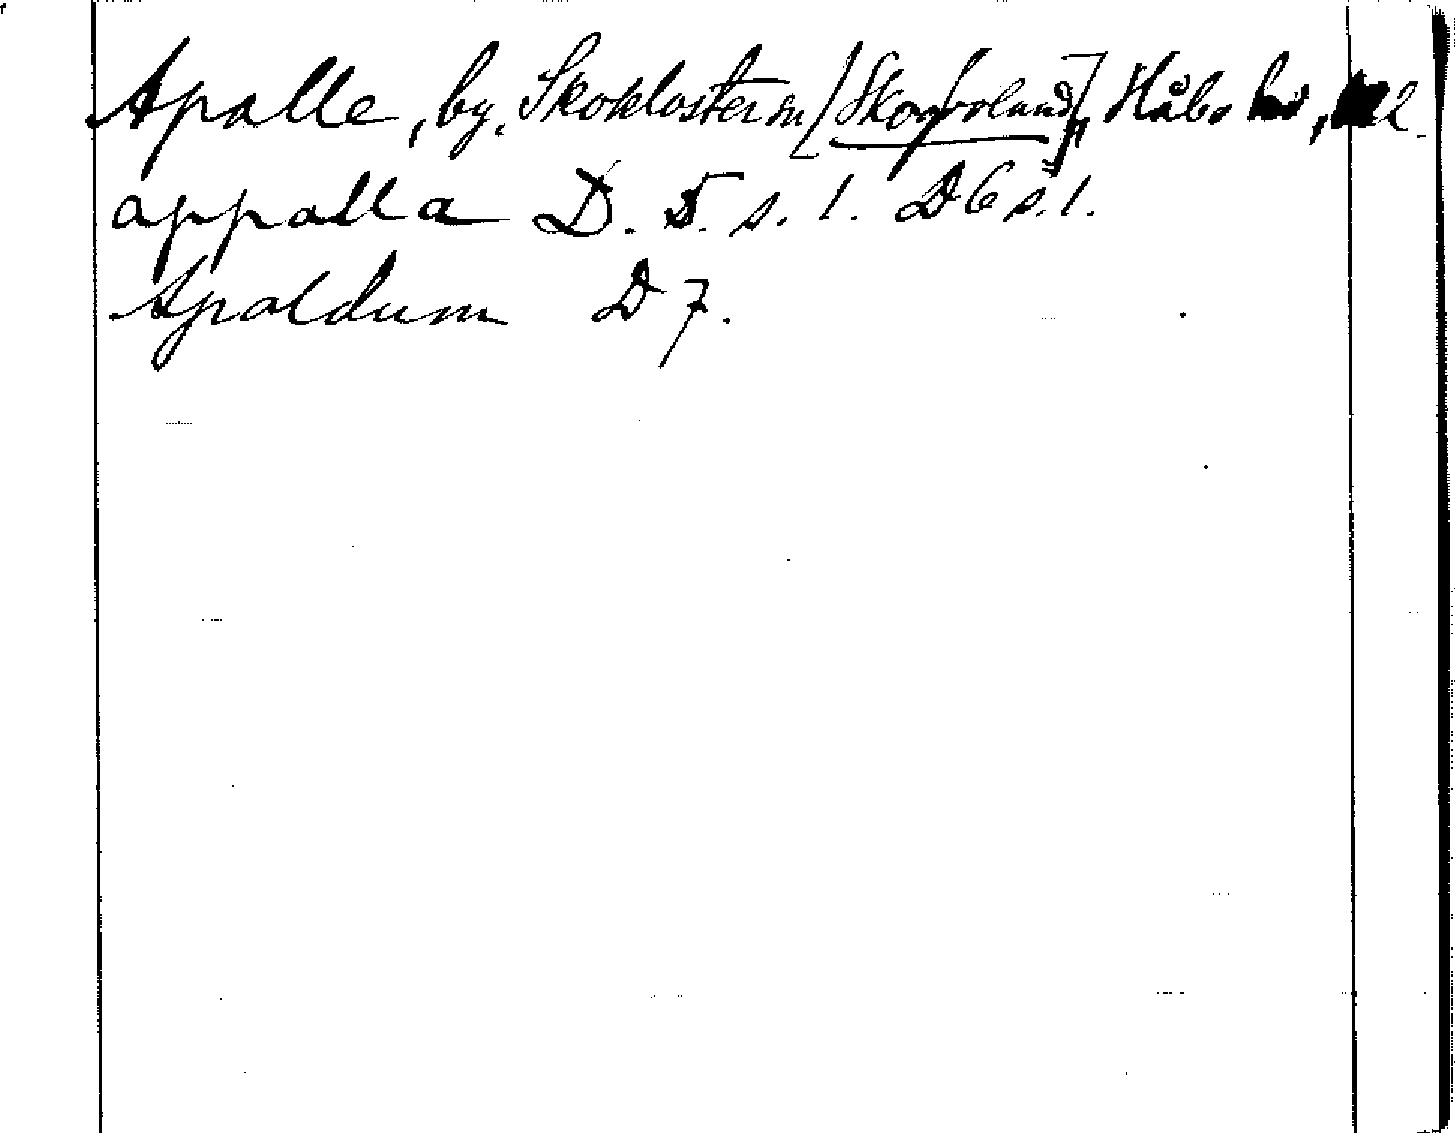 Apalle, by, Skoklosters sn [Skogboland], Håbo hd, Upl.
appalla D. 5. s. 1. D6 s. 1.
Apaldum D 7.